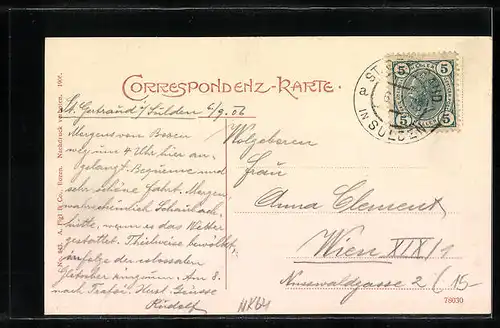 CORRESPONDENZ-KARTE.
St. Gertraud i/Sulden 6/9. 06
Morgens von Bozen
weg um 4 Uhr hier an-
gelangt. Bequeme und
sehr schöne Fahrt. Morgen
wahrscheinlich Schaubach-
hütte, wenn es das Wetter
gestattet. Theilweise bewölkt,
infolge der colossalen
Gletscher ringsum. Am 8.
nach Trafoi. Herzl. Grüsse
Rudolf
Wolgeboren
Frau
Anna Clement
Wien XIX/1
Nusswaldgasse 2 / 15-
5 5
5 5
ST. GERTRAUD
a
IN SULDEN
Nachdruck verboten. 1905.
78030